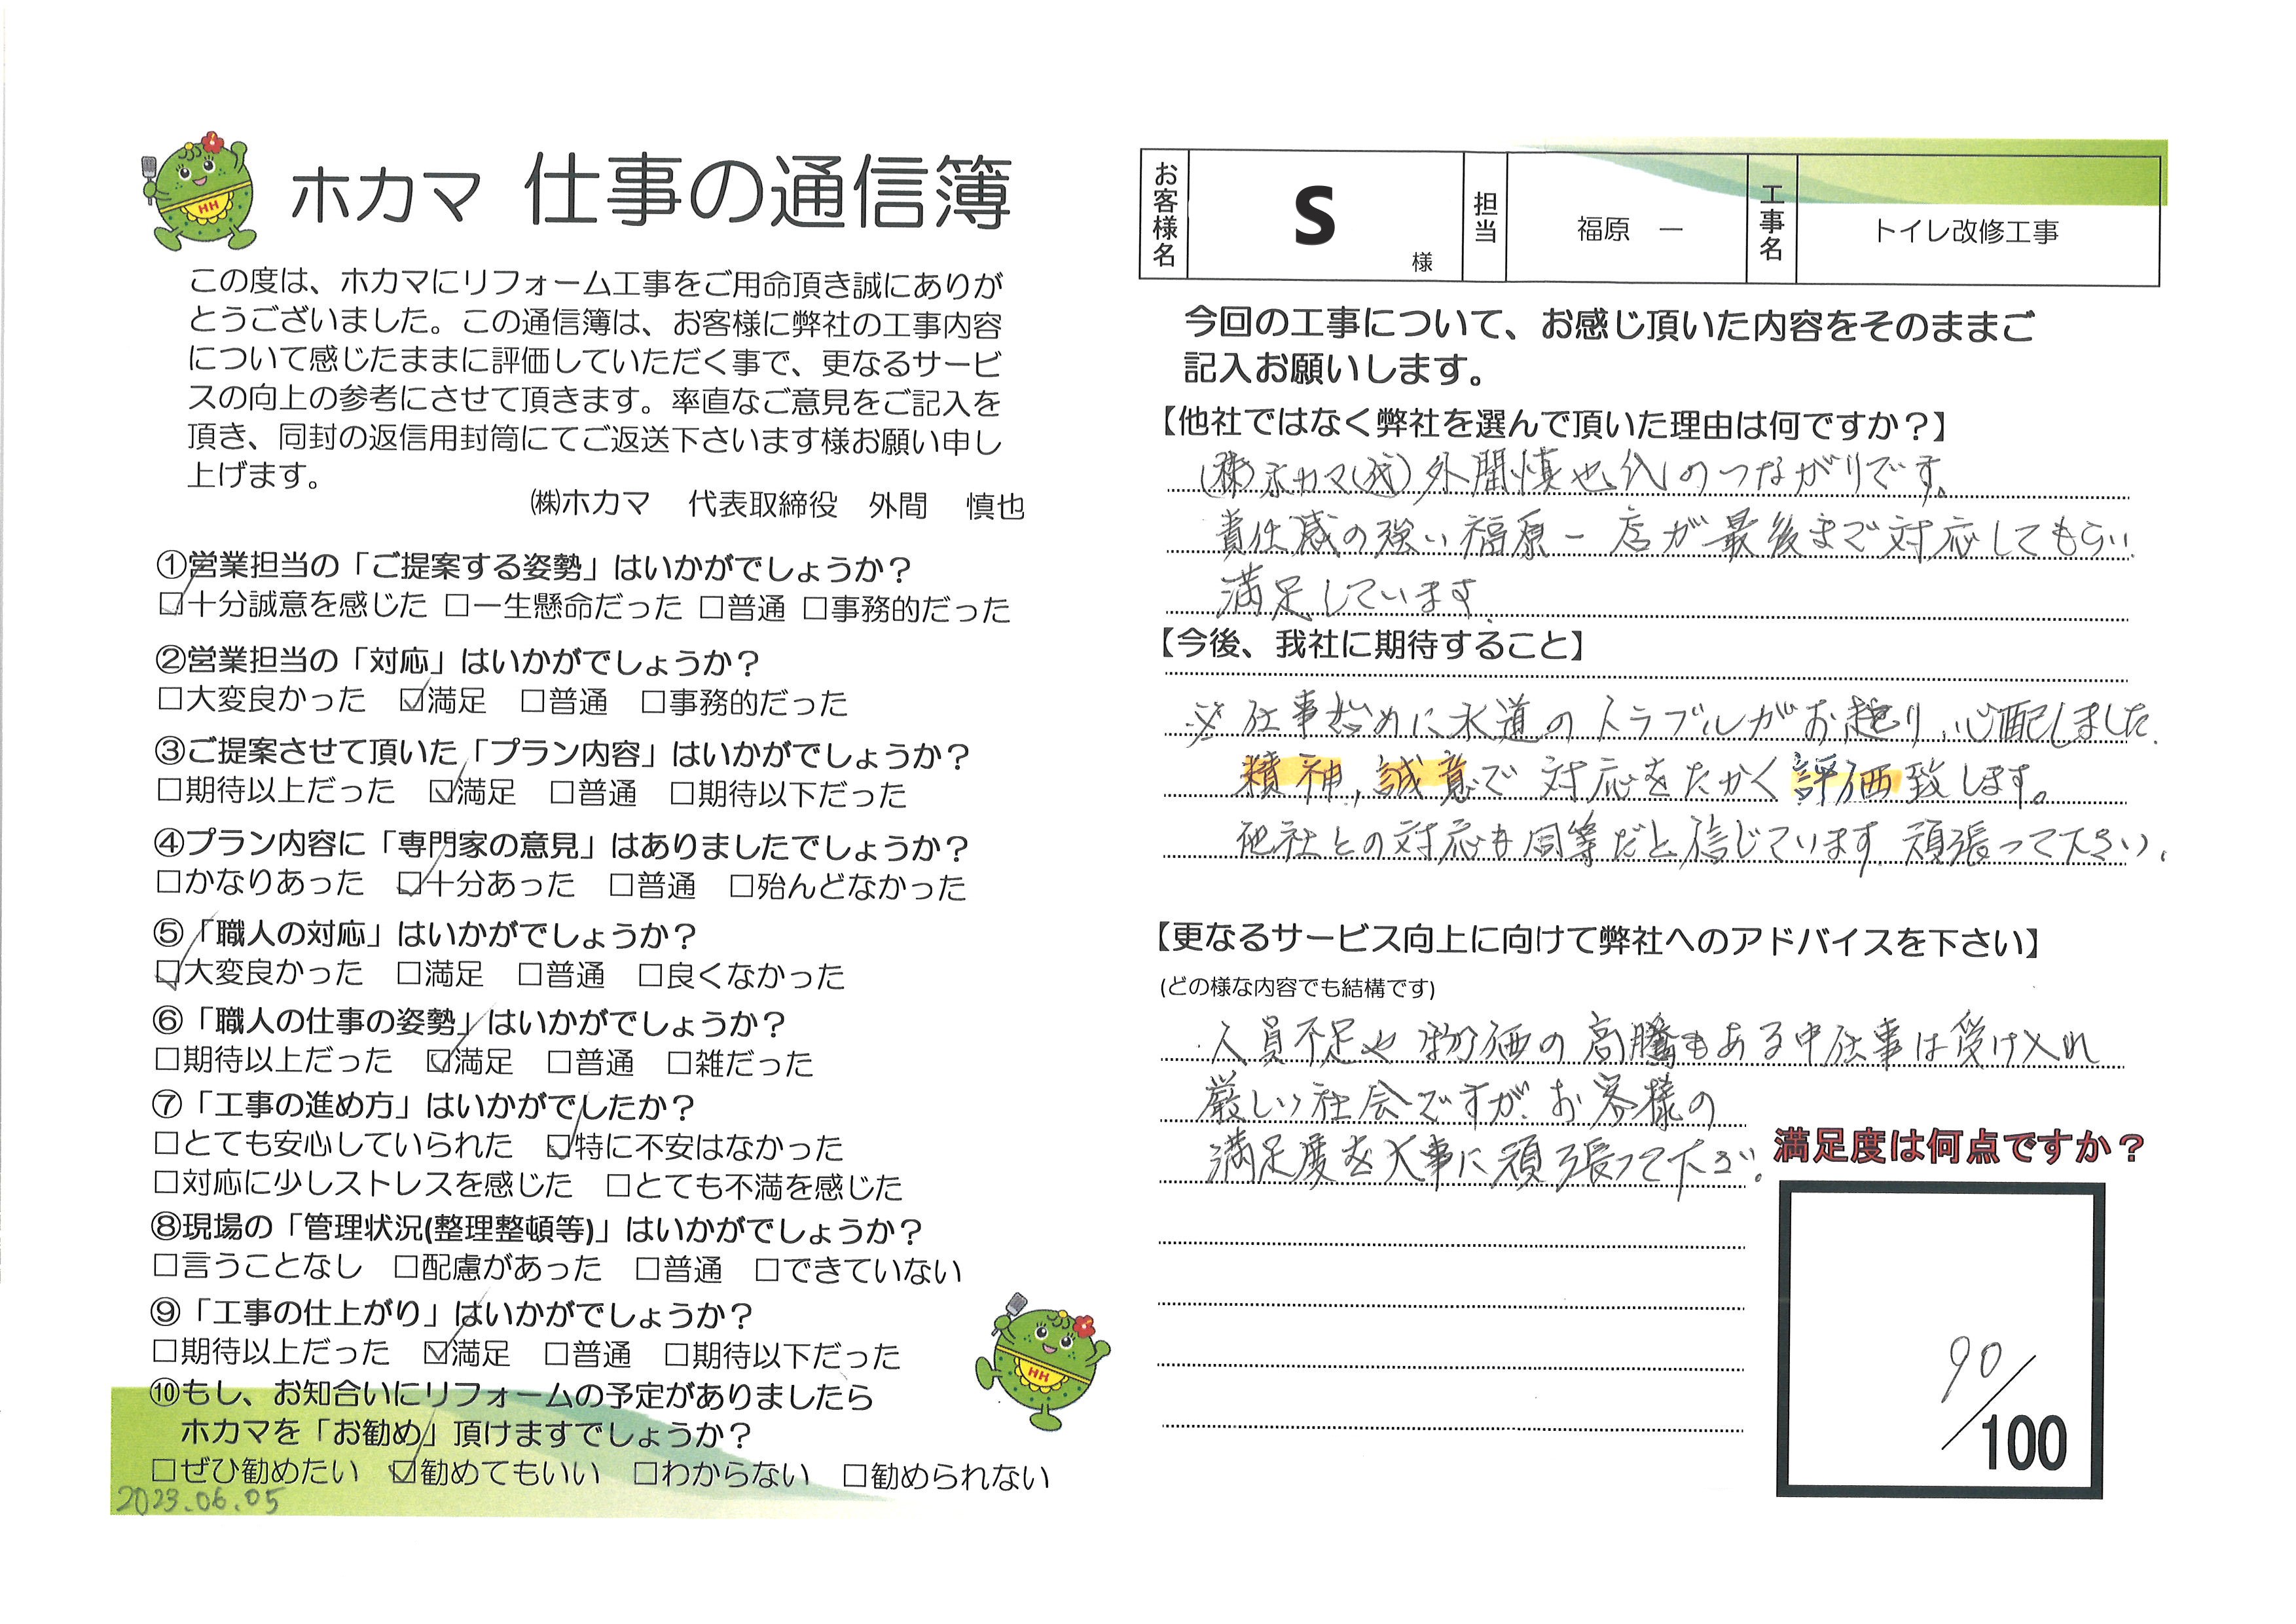 ホカマ 仕事の通信簿
この度は、ホカマにリフォーム工事をご用命頂き誠にありが
とうございました。この通信簿は、お客様に弊社の工事内容
について感じたままに評価していただく事で、更なるサービ
スの向上の参考にさせて頂きます。率直なご意見をご記入を
頂き、同封の返信用封筒にてご返送下さいます様お願い申し
上げます。
㈱ホカマ 代表取締役 外間 慎也
①営業担当の「ご提案する姿勢」はいかがでしょうか？
☑十分誠意を感じた □一生懸命だった □普通 □事務的だった
②営業担当の「対応」はいかがでしょうか？
□大変良かった ☑満足 □普通 □事務的だった
③ご提案させて頂いた「プラン内容」はいかがでしょうか？
□期待以上だった ☑満足 □普通 □期待以下だった
④プラン内容に「専門家の意見」はありましたでしょうか？
□かなりあった ☑十分あった □普通 □殆んどなかった
⑤「職人の対応」はいかがでしょうか？
☑大変良かった □満足 □普通 □良くなかった
⑥「職人の仕事の姿勢」はいかがでしょうか？
□期待以上だった ☑満足 □普通 □雑だった
⑦「工事の進め方」はいかがでしたか？
□とても安心していられた ☑特に不安はなかった
□対応に少しストレスを感じた □とても不満を感じた
⑧現場の「管理状況(整理整頓等)」はいかがでしょうか？
□言うことなし □配慮があった □普通 □できていない
⑨「工事の仕上がり」はいかがでしょうか？
□期待以上だった ☑満足 □普通 □期待以下だった
HH
⑩もし、お知合いにリフォームの予定がありましたら
ホカマを「お勧め」頂けますでしょうか？
□ぜひ勧めたい ☑勧めてもいい □わからない □勧められない
2023.06.05
お客様名 S 様 担当 福原 一 工事名 トイレ改修工事
今回の工事について、お感じ頂いた内容をそのままご
記入お願いします。
【他社ではなく弊社を選んで頂いた理由は何ですか？】
(株)ホカマ(代)外間慎也 のつながりです。
責任感の強い福原一 が最後まで対応してもらい
満足しています
【今後、我社に期待すること】
※仕事始めに水道のトラブルがお起り、心配しました。
精神、誠意で対応をたかく評価致します。
他社との対応も同等だと信じています。頑張って下さい。
【更なるサービス向上に向けて弊社へのアドバイスを下さい】
(どの様な内容でも結構です)
人員不足や物価の高騰もある中仕事は受け入れ
厳しい社会ですが、お客様の
満足度を大事に頑張って下さい。
満足度は何点ですか？
90/100